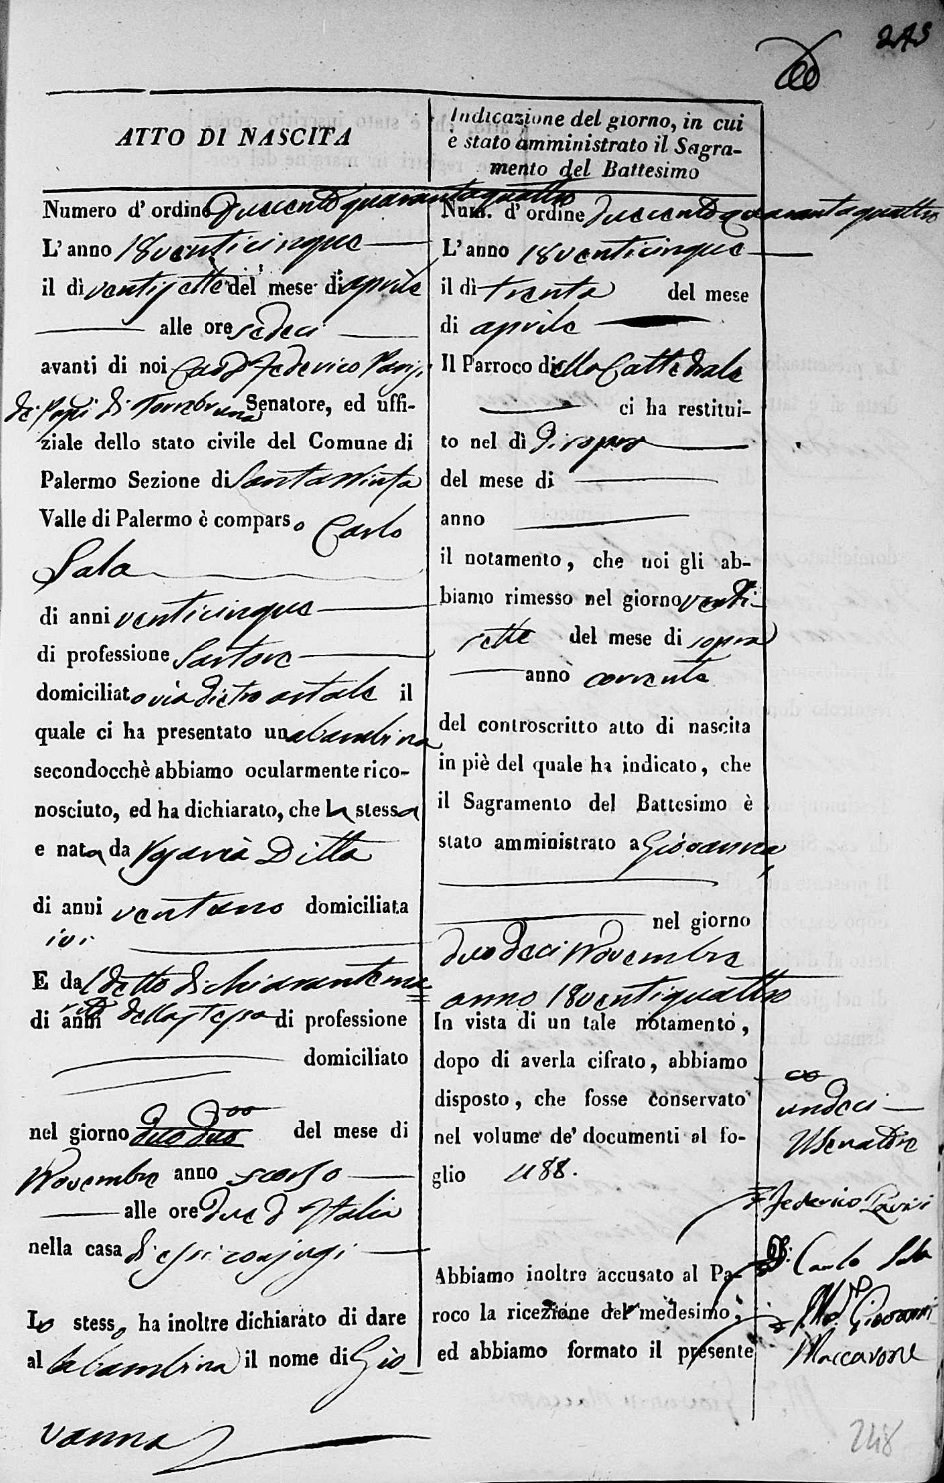 245
ATTO DI NASCITA
Numero d' ordine Duecentoquarantaquattro
L' anno 18venticinque
il dì ventisette del mese di aprile
alle ore sedeci
avanti di noi Federico
di Torrebruna Senatore, ed uffi-
ziale dello stato civile del Comune di
Palermo Sezione di Santa Ninfa
Valle di Palermo è comparso Carlo
Sala
di anni venticinque
di professione Sartore
domiciliato via dietro ostale il
quale ci ha presentato una bambina
secondocchè abbiamo ocularmente rico-
nosciuto, ed ha dichiarato, che la stessa
e nata da Ditta
di anni ventuno domiciliata
ivi
E dal detto dichiarante ma
di anni della stessa di professione
domiciliato
nel giorno duo duo del mese di
Novembre anno scorso
alle ore due d'Italia
nella casa di essi conjugi
Lo stesso ha inoltre dichiarato di dare
al la bambina il nome di Gio
vanna
Indicazione del giorno, in cui
e stato amministrato il Sagra-
mento del Battesimo
Num. d' ordine duecentoquarantaquattro
L' anno 18venticinque
il dì trenta del mese
di aprile
Il Parroco della Cattedrale
ci ha restitui-
to nel dì di sopra
del mese di
anno
il notamento, che noi gli ab-
biamo rimesso nel giorno venti
sette del mese di sopra
anno corrente
del controscritto atto di nascita
in piè del quale ha indicato, che
il Sagramento del Battesimo è
stato amministrato a Giovanna
nel giorno
duodeci Novembre
anno 18ventiquattro
In vista di un tale notamento,
dopo di averla cifrato, abbiamo
disposto, che fosse conservato
nel volume de' documenti al fo-
glio 488.
Abbiamo inoltre accusato al Pa-
roco la ricezione del medesimo,
ed abbiamo formato il presente
undeci
Il Senatore
Federico
Carlo Sala
Giovanni
Maccarone
248